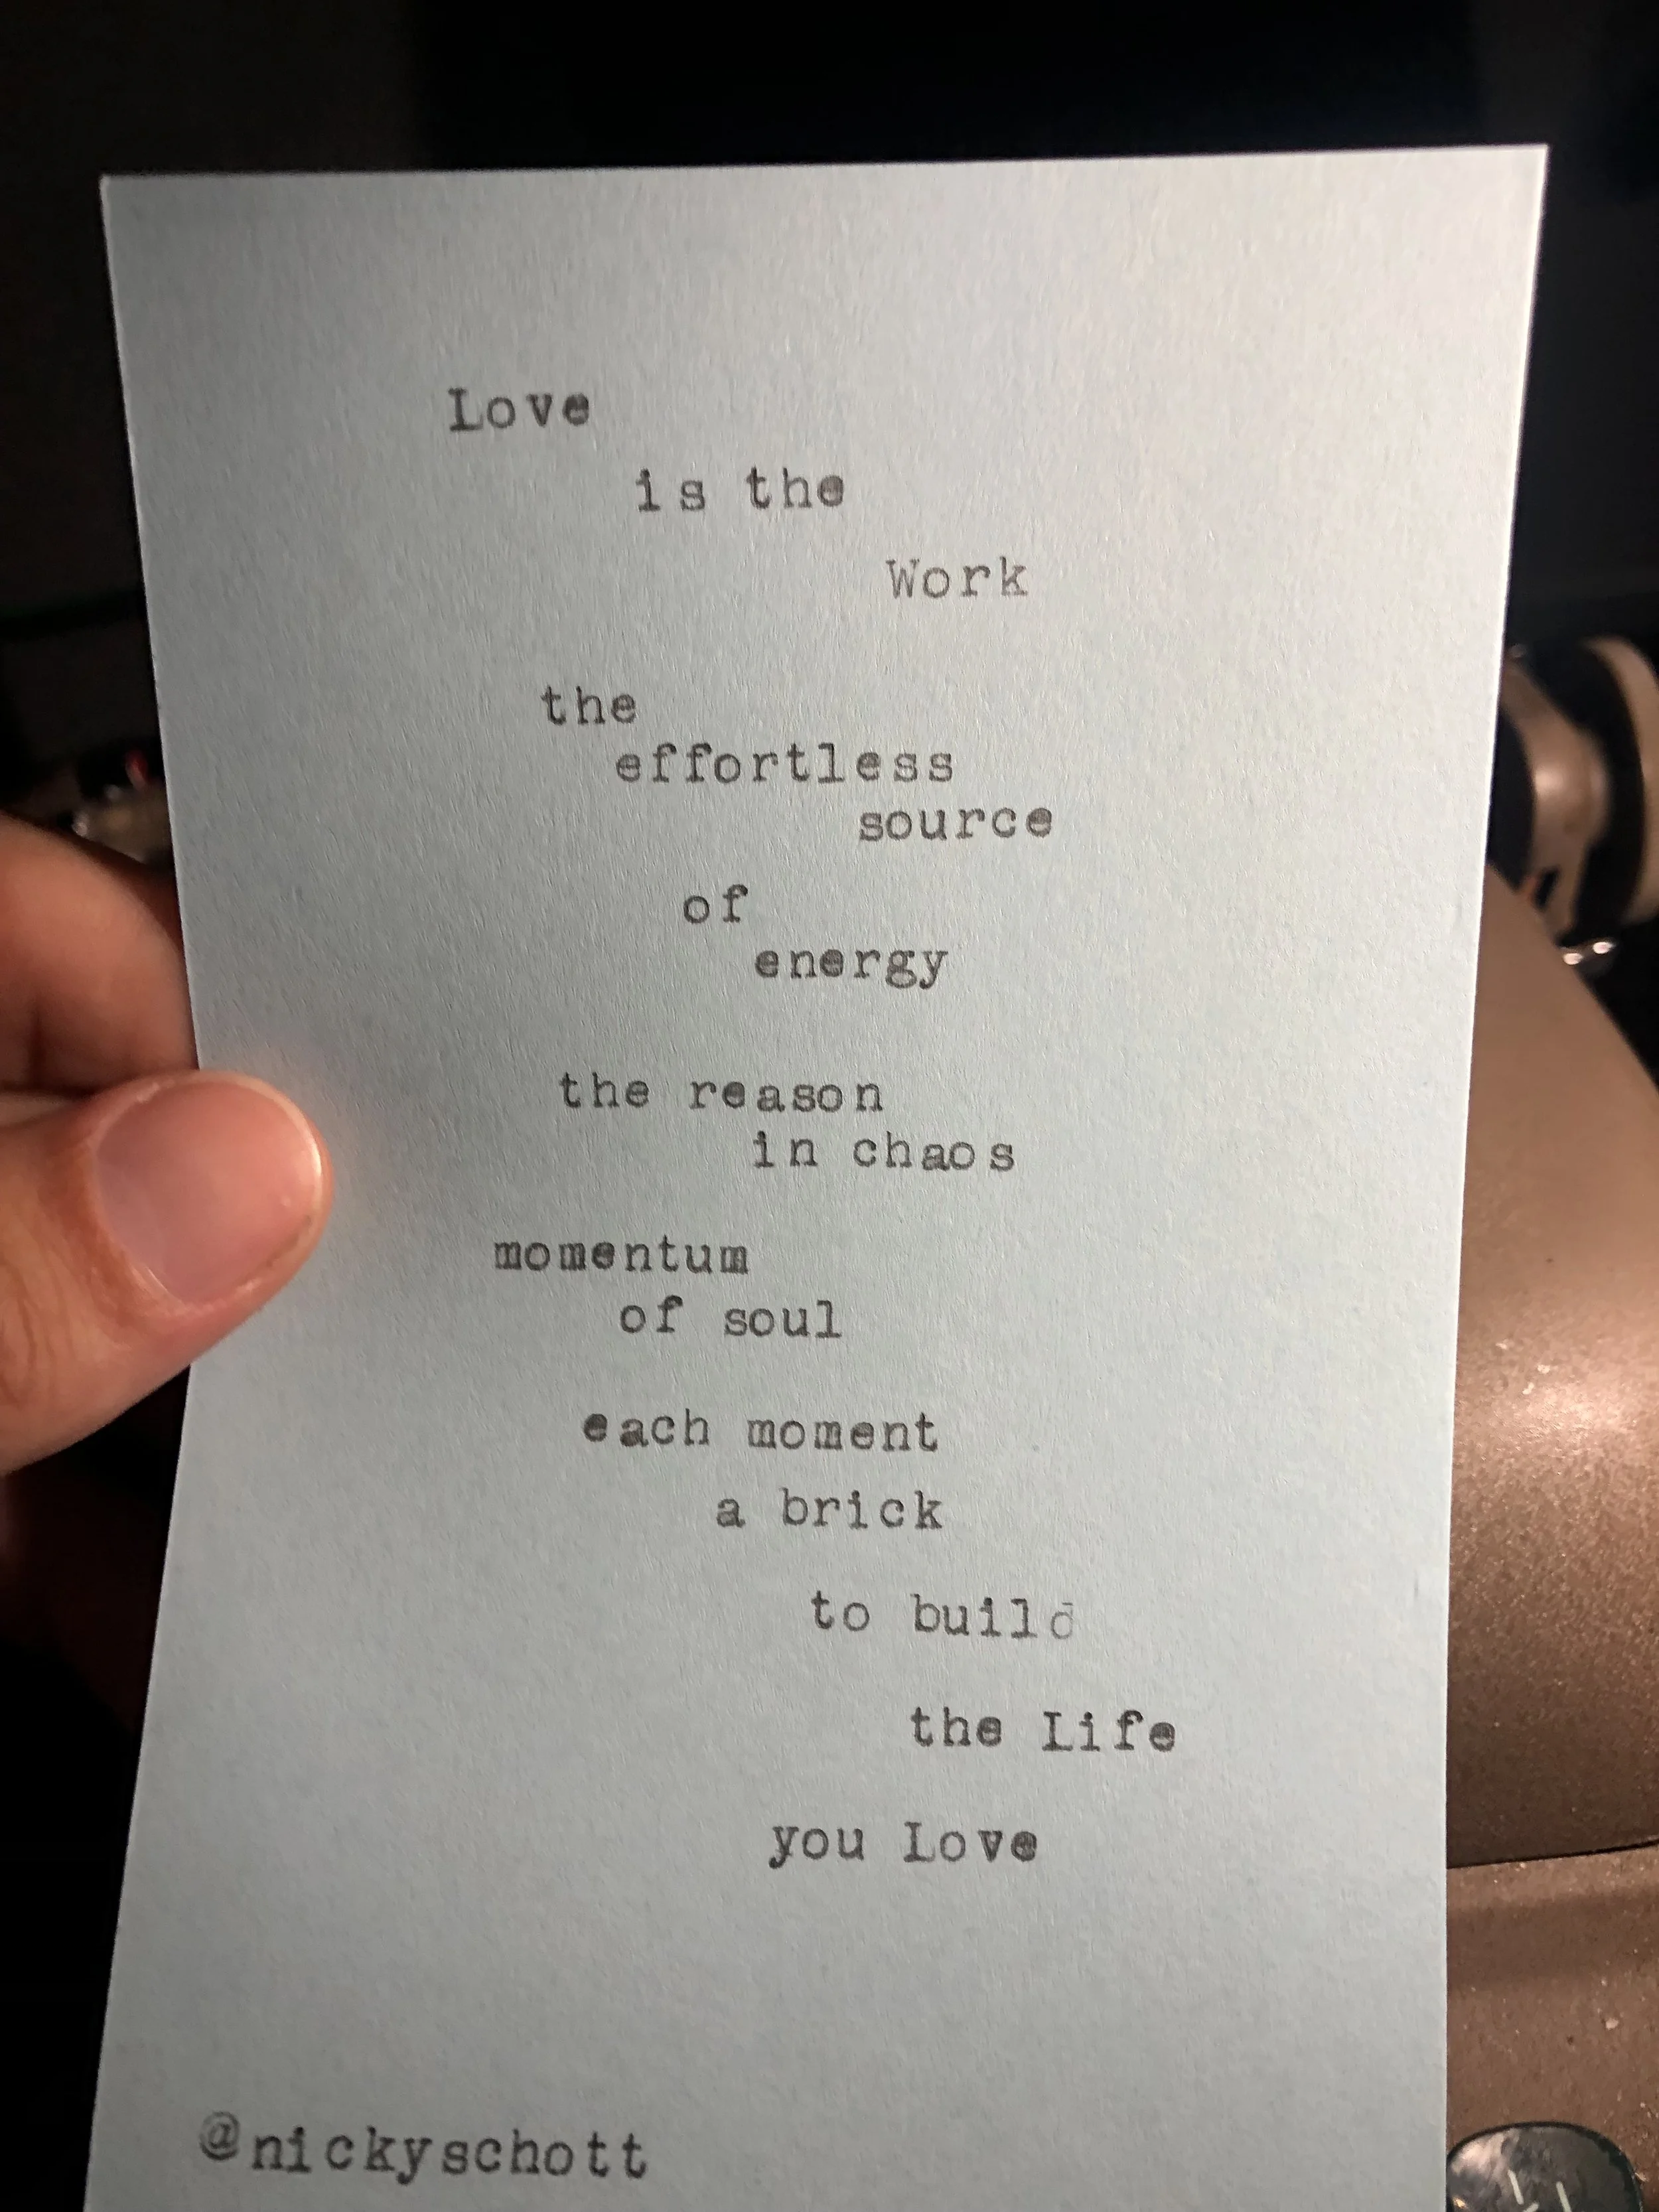 Love
is the
Work
the
effortless
source
of
energy
the reason
in chaos
momentum
of soul
each moment
a brick
to build
the Life
you Love
@nickyschott